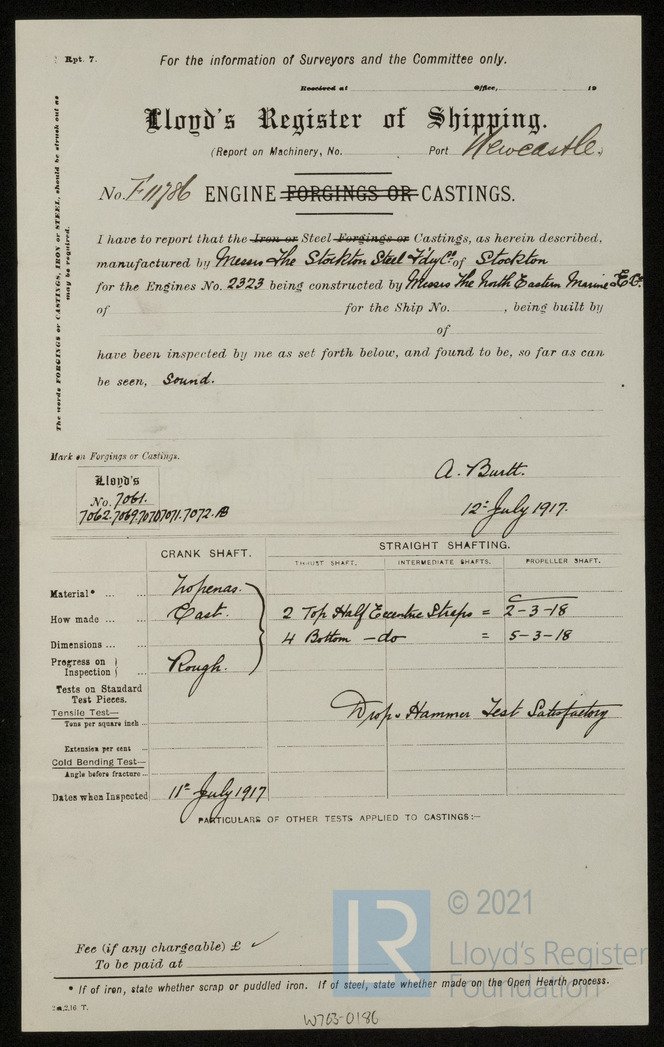 Rpt. 7.
For the information of Surveyors and the Committee only.
Received at Office, 19
Lloyd's Register of Shipping.
(Report on Machinery, No. Port Newcastle.)
No. F 11786 ENGINE FORGINGS OR CASTINGS.
The words FORGINGS or CASTINGS, IRON or STEEL, should be struck out as
may be required.
I have to report that the Iron or Steel Forgings or Castings, as herein described,
manufactured by Messrs The Stockton Steel Fdy Co. of Stockton
for the Engines No. 2323 being constructed by Messrs The North Eastern Marine E. Co.
of for the Ship No. , being built by
of
have been inspected by me as set forth below, and found to be, so far as can
be seen, Sound.
Mark on Forgings or Castings.
Lloyd's
No. 7061.
7062. 7069. 7070 7071. 7072. AB
A. Burtt.
12th July 1917.
CRANK SHAFT.
STRAIGHT SHAFTING.
THRUST SHAFT. INTERMEDIATE SHAFTS. PROPELLER SHAFT.
Material* ... ... Tropenas.
How made ... ... Cast. 2 Top Half Eccentric Straps = 2-3-18
4 Bottom - do = 5-3-18
Dimensions ... ...
Progress on
Inspection } ... Rough.
Tests on Standard
Test Pieces.
Tensile Test—
Tons per square inch ...
Drop & Hammer Test Satisfactory
Extension per cent ...
Cold Bending Test—
Angle before fracture ...
Dates when Inspected 11th July 1917
PARTICULARS OF OTHER TESTS APPLIED TO CASTINGS:—
Fee (if any chargeable) £ ✓
To be paid at
* If of iron, state whether scrap or puddled iron. If of steel, state whether made on the Open Hearth process.
2m,2,16. T.
W703-0186
LR
© 2021
Lloyd's Register
Foundation